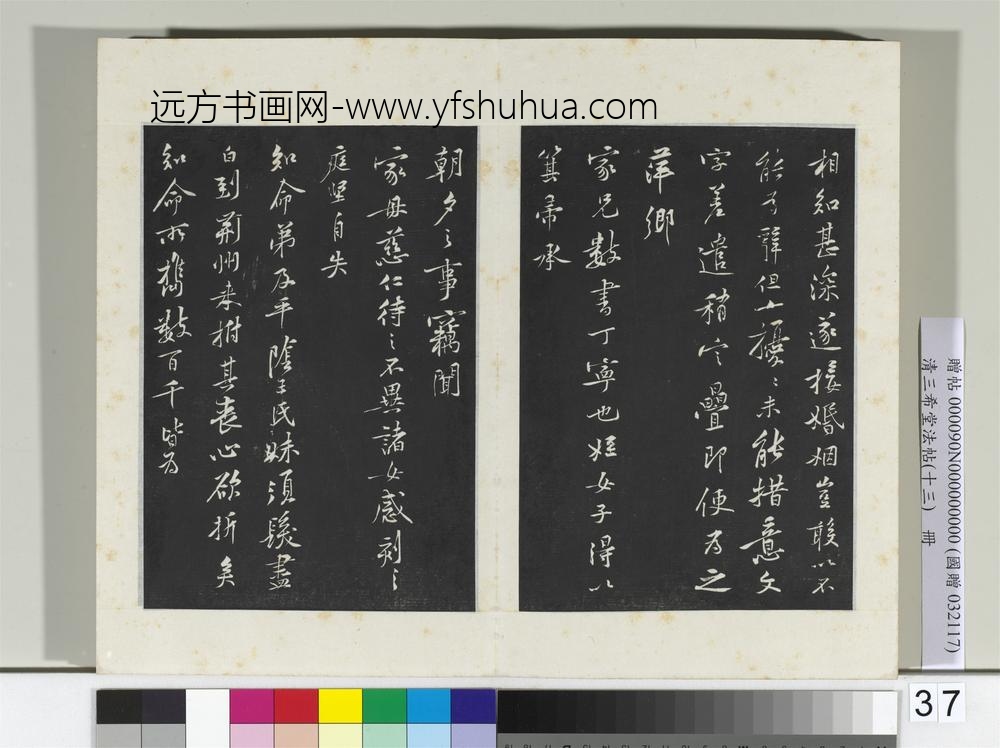 远方书画网-www.yfshuhua.com
相知甚深遂接婚姻豈敢以不
能为辭但女擾〻未能措意文
字差遣稍定疊即便为之
萍鄉
家兄數書丁寧也姪女子得以
箕帚承
朝夕之事竊聞
家母慈仁待之不異諸女感刻之
庭堅自失
知命弟及平陰王氏妹須髮盡
白到荊州来拊其喪心欲折矣
知命所攜数百千皆为
贈帖 000090N000000000 (國贈 032117)
清三希堂法帖(十三) 冊
37